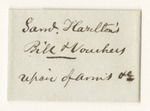 Saml. Hazelton's
Bill & Vouchers
repair of arms &c